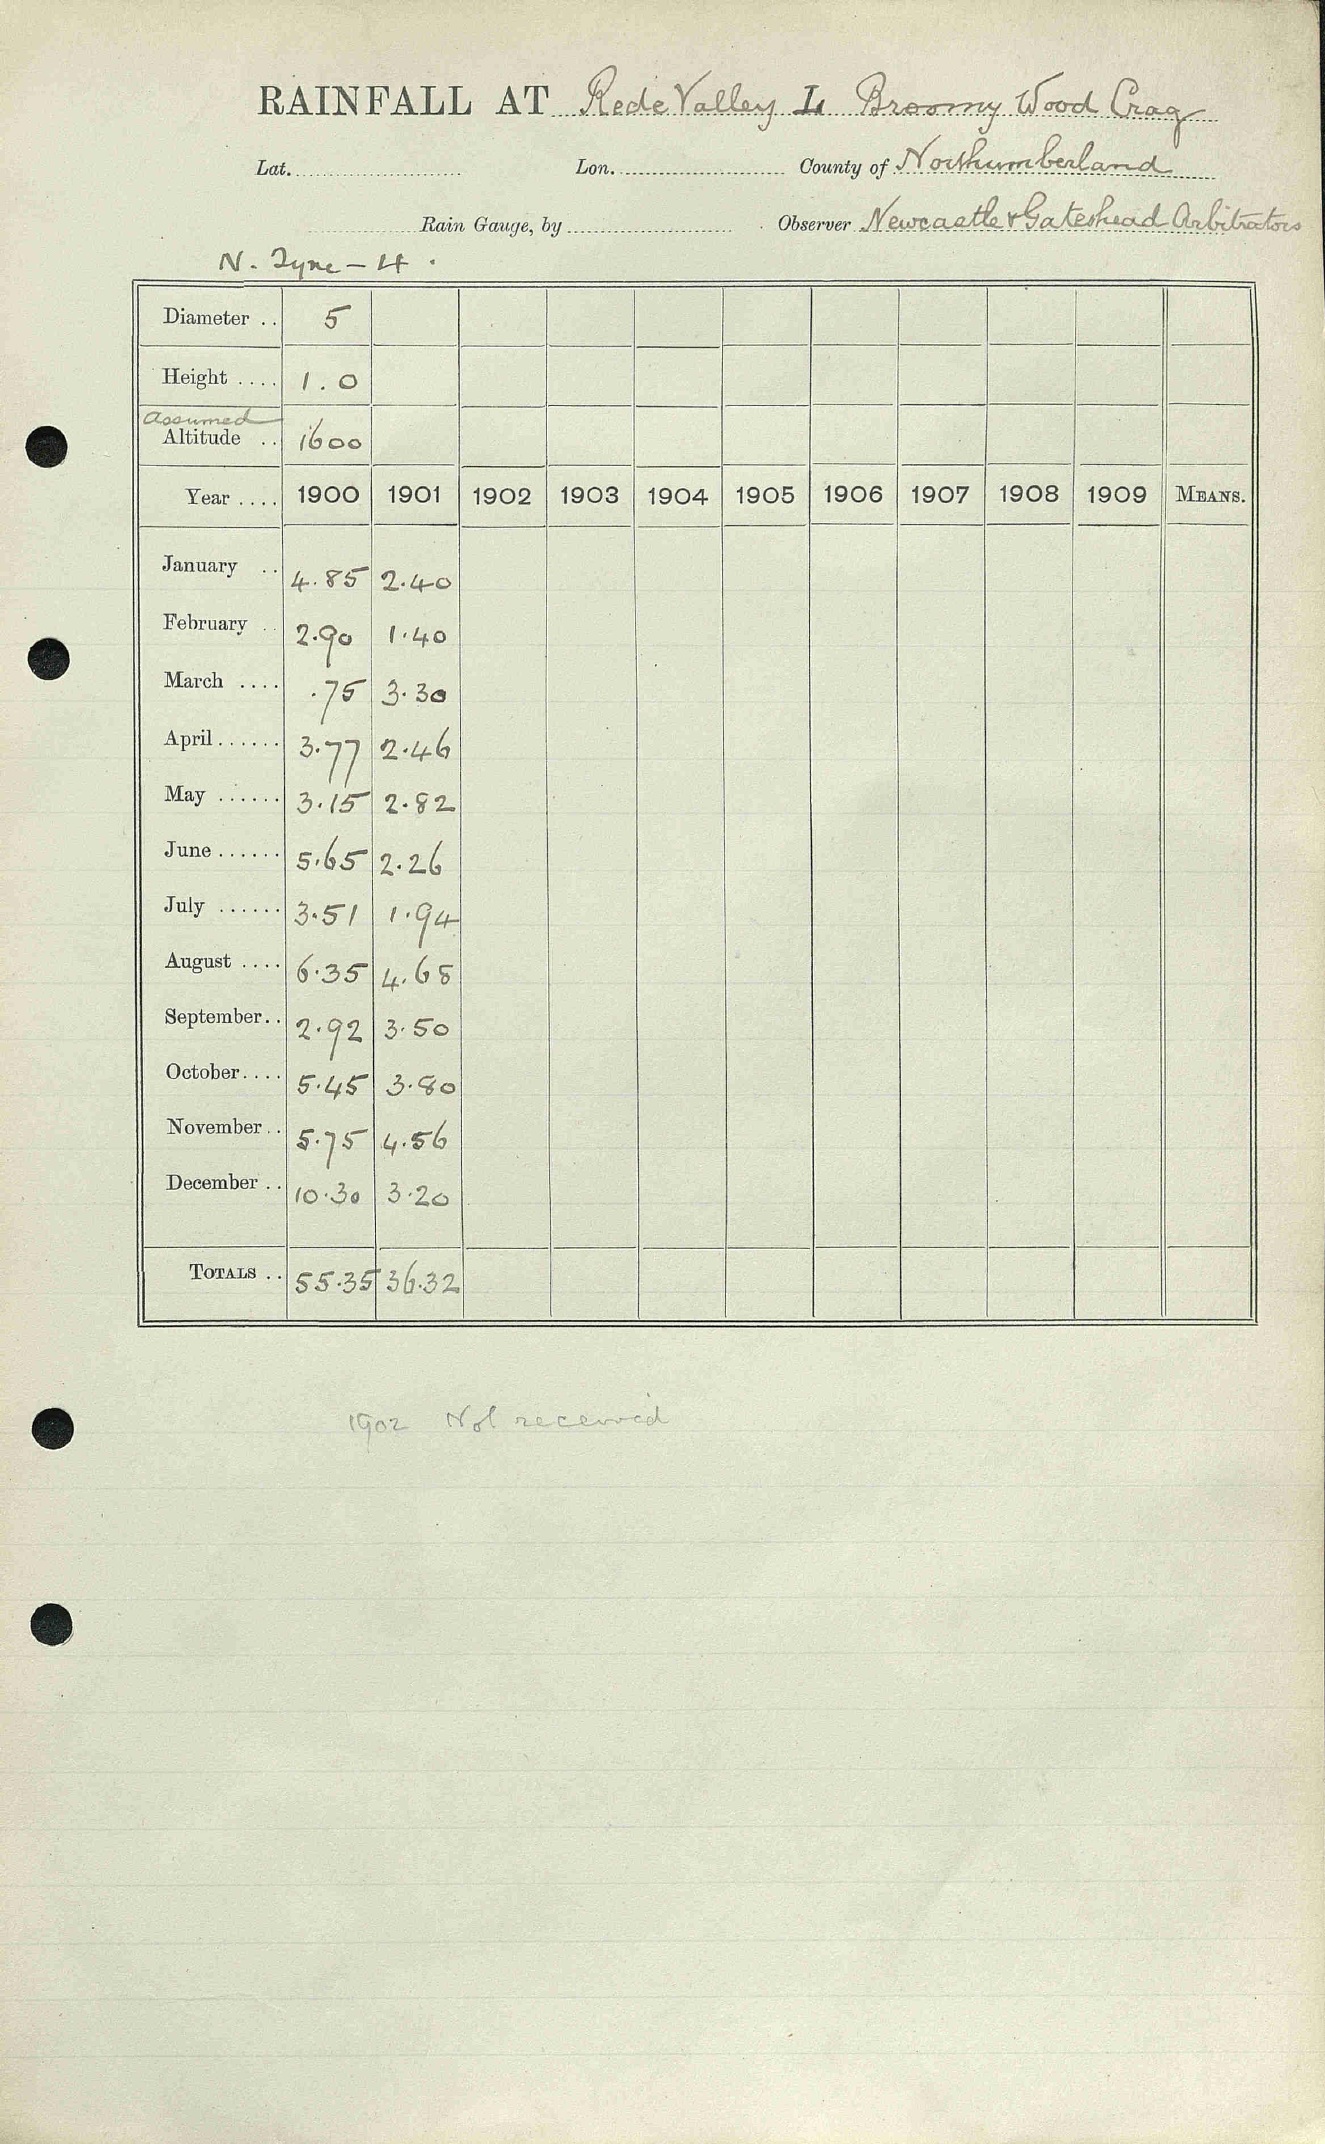 RAINFALL AT Rede Valley L Broomy Wood Crag
Lat. Lon. County of Northumberland
Rain Gauge, by Observer Newcastle & Gateshead Arbitrators
N. Tyne - 4.
Diameter .. 5
Height .... 1.0
Assumed
Altitude .. 1600
Year .... 1900 1901 1902 1903 1904 1905 1906 1907 1908 1909 MEANS.
January .. 4.85 2.40
February .. 2.90 1.40
March .... .75 3.30
April ...... 3.77 2.46
May ...... 3.15 2.82
June ...... 5.65 2.26
July ...... 3.51 1.94
August .... 6.35 4.68
September .. 2.92 3.50
October .... 5.45 3.80
November .. 5.75 4.56
December .. 10.30 3.20
TOTALS .. 55.35 36.32
1902 Not received